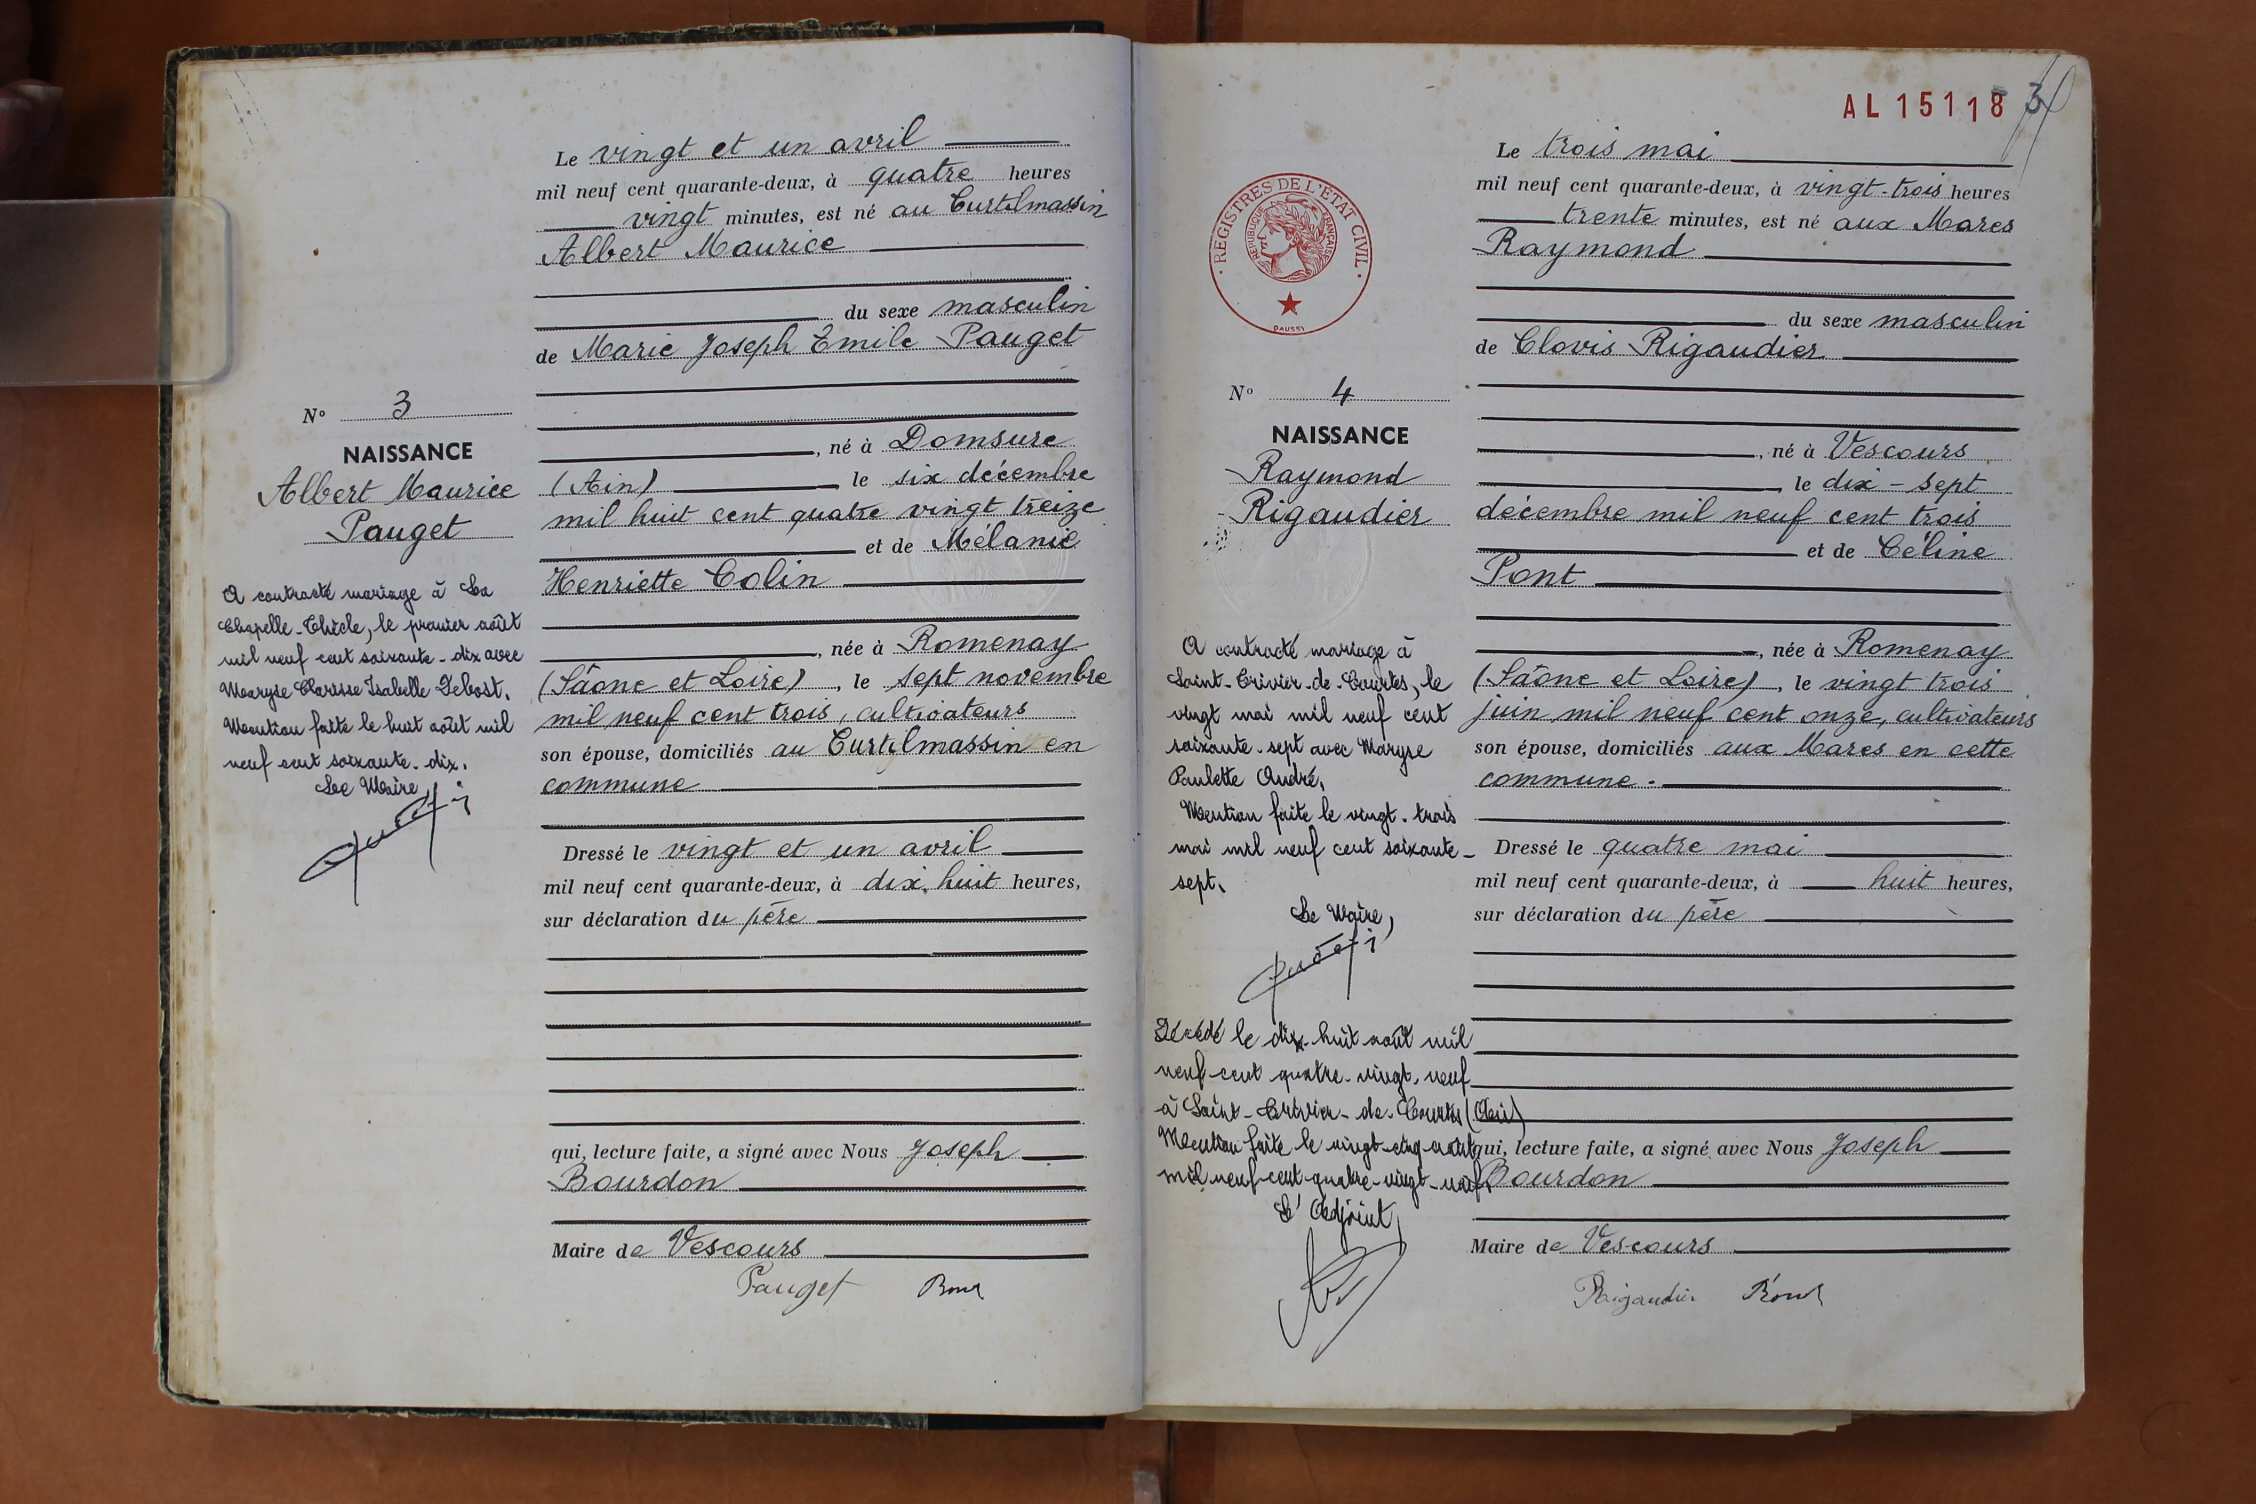 Le vingt et un avril
mil neuf cent quarante-deux, à quatre heures
vingt minutes, est né au Curtilmassin
Albert Maurice
du sexe masculin
de Marie Joseph Emile Pauget
, né à Domsure
(Ain) le six décembre
mil huit cent quatre vingt treize
et de Mélanie
Henriette Colin
, née à Romenay
(Sâone et Loire), le sept novembre
mil neuf cent trois, cultivateurs
son épouse, domiciliés au Curtilmassin en
commune
Dressé le vingt et un avril
mil neuf cent quarante-deux, à dix-huit heures,
sur déclaration du père
qui, lecture faite, a signé avec Nous Joseph
Bourdon
Maire de Vescours
Pauget
No 3
NAISSANCE
Albert Maurice
Pauget
A contracté mariage à La
Chapelle-Thècle, le premier août
mil neuf cent soixante-dix avec
Maryse Clarisse Isabelle Debost.
Mention faite le huit août mil
neuf cent soixante-dix.
Le Maire
AL 15118
Le trois mai
mil neuf cent quarante-deux, à vingt-trois heures
trente minutes, est né aux Mares
Raymond
du sexe masculin
de Clovis Rigaudier
, né à Vescours
, le dix-sept
décembre mil neuf cent trois
et de Céline
Pont
, née à Romenay
(Sâone et Loire), le vingt trois
juin mil neuf cent onze, cultivateurs
son épouse, domiciliés aux Mares en cette
commune.
Dressé le quatre mai
mil neuf cent quarante-deux, à huit heures,
sur déclaration du père
qui, lecture faite, a signé avec Nous Joseph
Bourdon
Maire de Vescours
Rigaudier
REGISTRES DE L'ÉTAT CIVIL
RÉPUBLIQUE FRANÇAISE
DAUSSY
No 4
NAISSANCE
Raymond
Rigaudier
A contracté mariage à
Saint-Trivier-de-Courtes, le
vingt mai mil neuf cent
soixante-sept avec Maryse
Paulette André.
Mention faite le vingt-trois
mai mil neuf cent soixante-
sept.
Le Maire,
Décédé le dix-huit août mil
neuf cent quatre-vingt-neuf
à Saint-Trivier-de-Courtes (Ain)
Mention faite le vingt-cinq août
mil neuf cent quatre-vingt-neuf.
L'Adjoint,